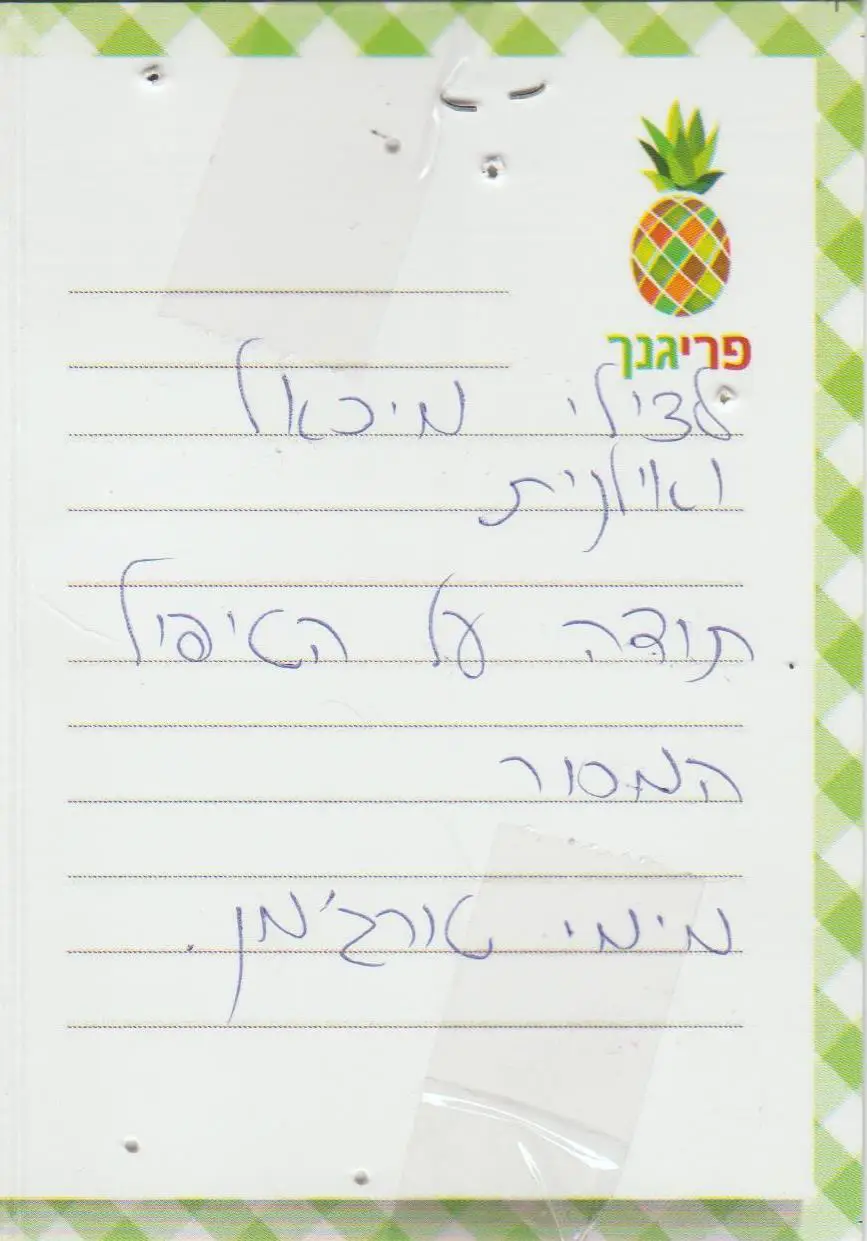 פריגנך
לצילי מיכאל
ואילנית
תודה על הטיפול
המסור
מימי טורג'מן.